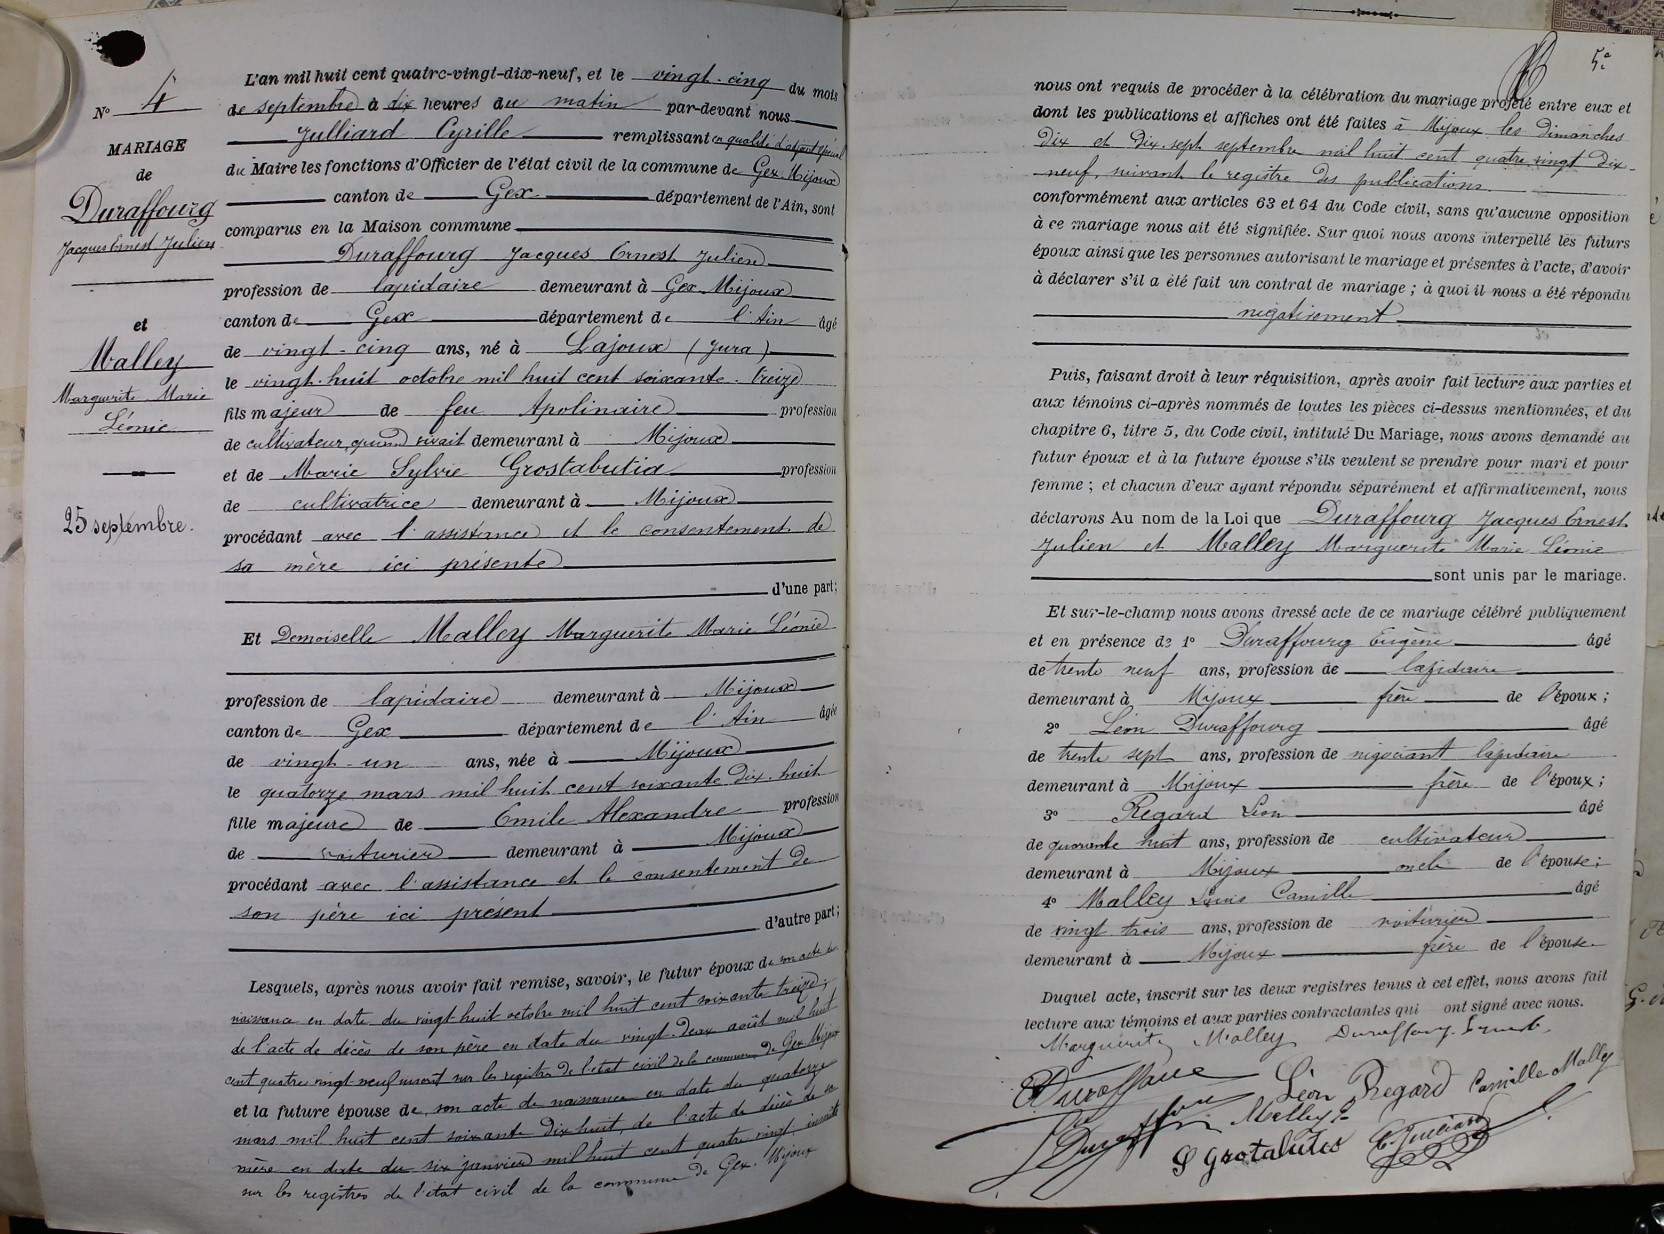 N° 4
MARIAGE
de
Duraffourg
Jacques Ernest Julien
et
Malley
Marguerite Marie
Léonie
25 septembre.
L'an mil huit cent quatre-vingt-dix-neuf, et le vingt-cinq du mois
de septembre à dix heures du matin par-devant nous
Julliard Cyrille remplissant en qualité d'adjoint spécial
du Maire les fonctions d'Officier de l'état civil de la commune de Gex-Mijoux
canton de Gex département de l'Ain, sont
comparus en la Maison commune
Duraffourg Jacques Ernest Julien
profession de lapidaire demeurant à Gex-Mijoux
canton de Gex département de l'Ain âgé
de vingt-cinq ans, né à Lajoux (Jura)
le vingt-huit octobre mil huit cent soixante-treize
fils majeur de feu Apolinaire profession
de cultivateur, quand vivait demeurant à Mijoux
et de Marie Sylvie Grostabutiax profession
de cultivatrice demeurant à Mijoux
procédant avec l'assistance et le consentement de
sa mère ici présente
d'une part;
Et Demoiselle Malley Marguerite Marie Léonie
profession de lapidaire demeurant à Mijoux
canton de Gex département de l'Ain âgée
de vingt-un ans, née à Mijoux
le quatorze mars mil huit cent soixante dix-huit
fille majeure de Emile Alexandre profession
de voiturier demeurant à Mijoux
procédant avec l'assistance et le consentement de
son père ici présent
d'autre part;
Lesquels, après nous avoir fait remise, savoir, le futur époux de son acte de
naissance en date du vingt-huit octobre mil huit cent soixante treize,
de l'acte de décès de son père en date du vingt-deux août mil huit
cent quatre vingt-neuf inscrit sur les registres de l'état civil de la commune de Gex-Mijoux
et la future épouse de son acte de naissance en date du quatorze
mars mil huit cent soixante dix huit, de l'acte de décès de sa
mère en date du six janvier mil huit cent quatre vingt inscrits
sur les registres de l'état civil de la commune de Gex-Mijoux
5e
nous ont requis de procéder à la célébration du mariage projeté entre eux et
dont les publications et affiches ont été faites à Mijoux les dimanches
dix et dix sept septembre mil huit cent quatre vingt dix-
neuf, suivant le registre des publications.
conformément aux articles 63 et 64 du Code civil, sans qu'aucune opposition
à ce mariage nous ait été signifiée. Sur quoi nous avons interpellé les futurs
époux ainsi que les personnes autorisant le mariage et présentes à l'acte, d'avoir
à déclarer s'il a été fait un contrat de mariage; à quoi il nous a été répondu
négativement
Puis, faisant droit à leur réquisition, après avoir fait lecture aux parties et
aux témoins ci-après nommés de toutes les pièces ci-dessus mentionnées, et du
chapitre 6, titre 5, du Code civil, intitulé Du Mariage, nous avons demandé au
futur époux et à la future épouse s'ils veulent se prendre pour mari et pour
femme; et chacun d'eux ayant répondu séparément et affirmativement, nous
déclarons Au nom de la Loi que Duraffourg Jacques Ernest
Julien et Malley Marguerite Marie Léonie
sont unis par le mariage.
Et sur-le-champ nous avons dressé acte de ce mariage célébré publiquement
et en présence de 1° Duraffourg Eugène âgé
de trente neuf ans, profession de lapidaire
demeurant à Mijoux frère de l'époux;
2° Léon Duraffourg âgé
de trente sept ans, profession de négociant lapidaire
demeurant à Mijoux frère de l'époux;
3° Regard Léon âgé
de quarante huit ans, profession de cultivateur
demeurant à Mijoux oncle de l'épouse;
4° Malley Louis Camille âgé
de vingt trois ans, profession de voiturier
demeurant à Mijoux frère de l'épouse.
Duquel acte, inscrit sur les deux registres tenus à cet effet, nous avons fait
lecture aux témoins et aux parties contractantes qui ont signé avec nous.
Marguerite Malley Duraffourg Ernest
Léon Regard Camille Malley
Malley E
C. Julliard